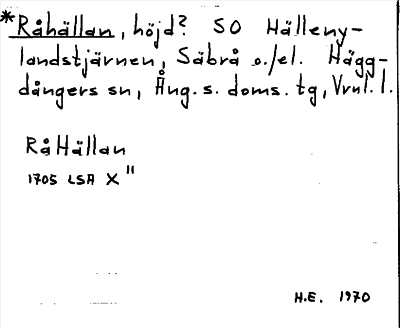 *Råhällan, höjd? SO Hälleny-
landstjärnen, Säbrå o./el. Hägg-
dångers sn, Ång. s. doms. tg, Vrnl. l.
RåHällan
1705 LSA X"
H.E. 1970